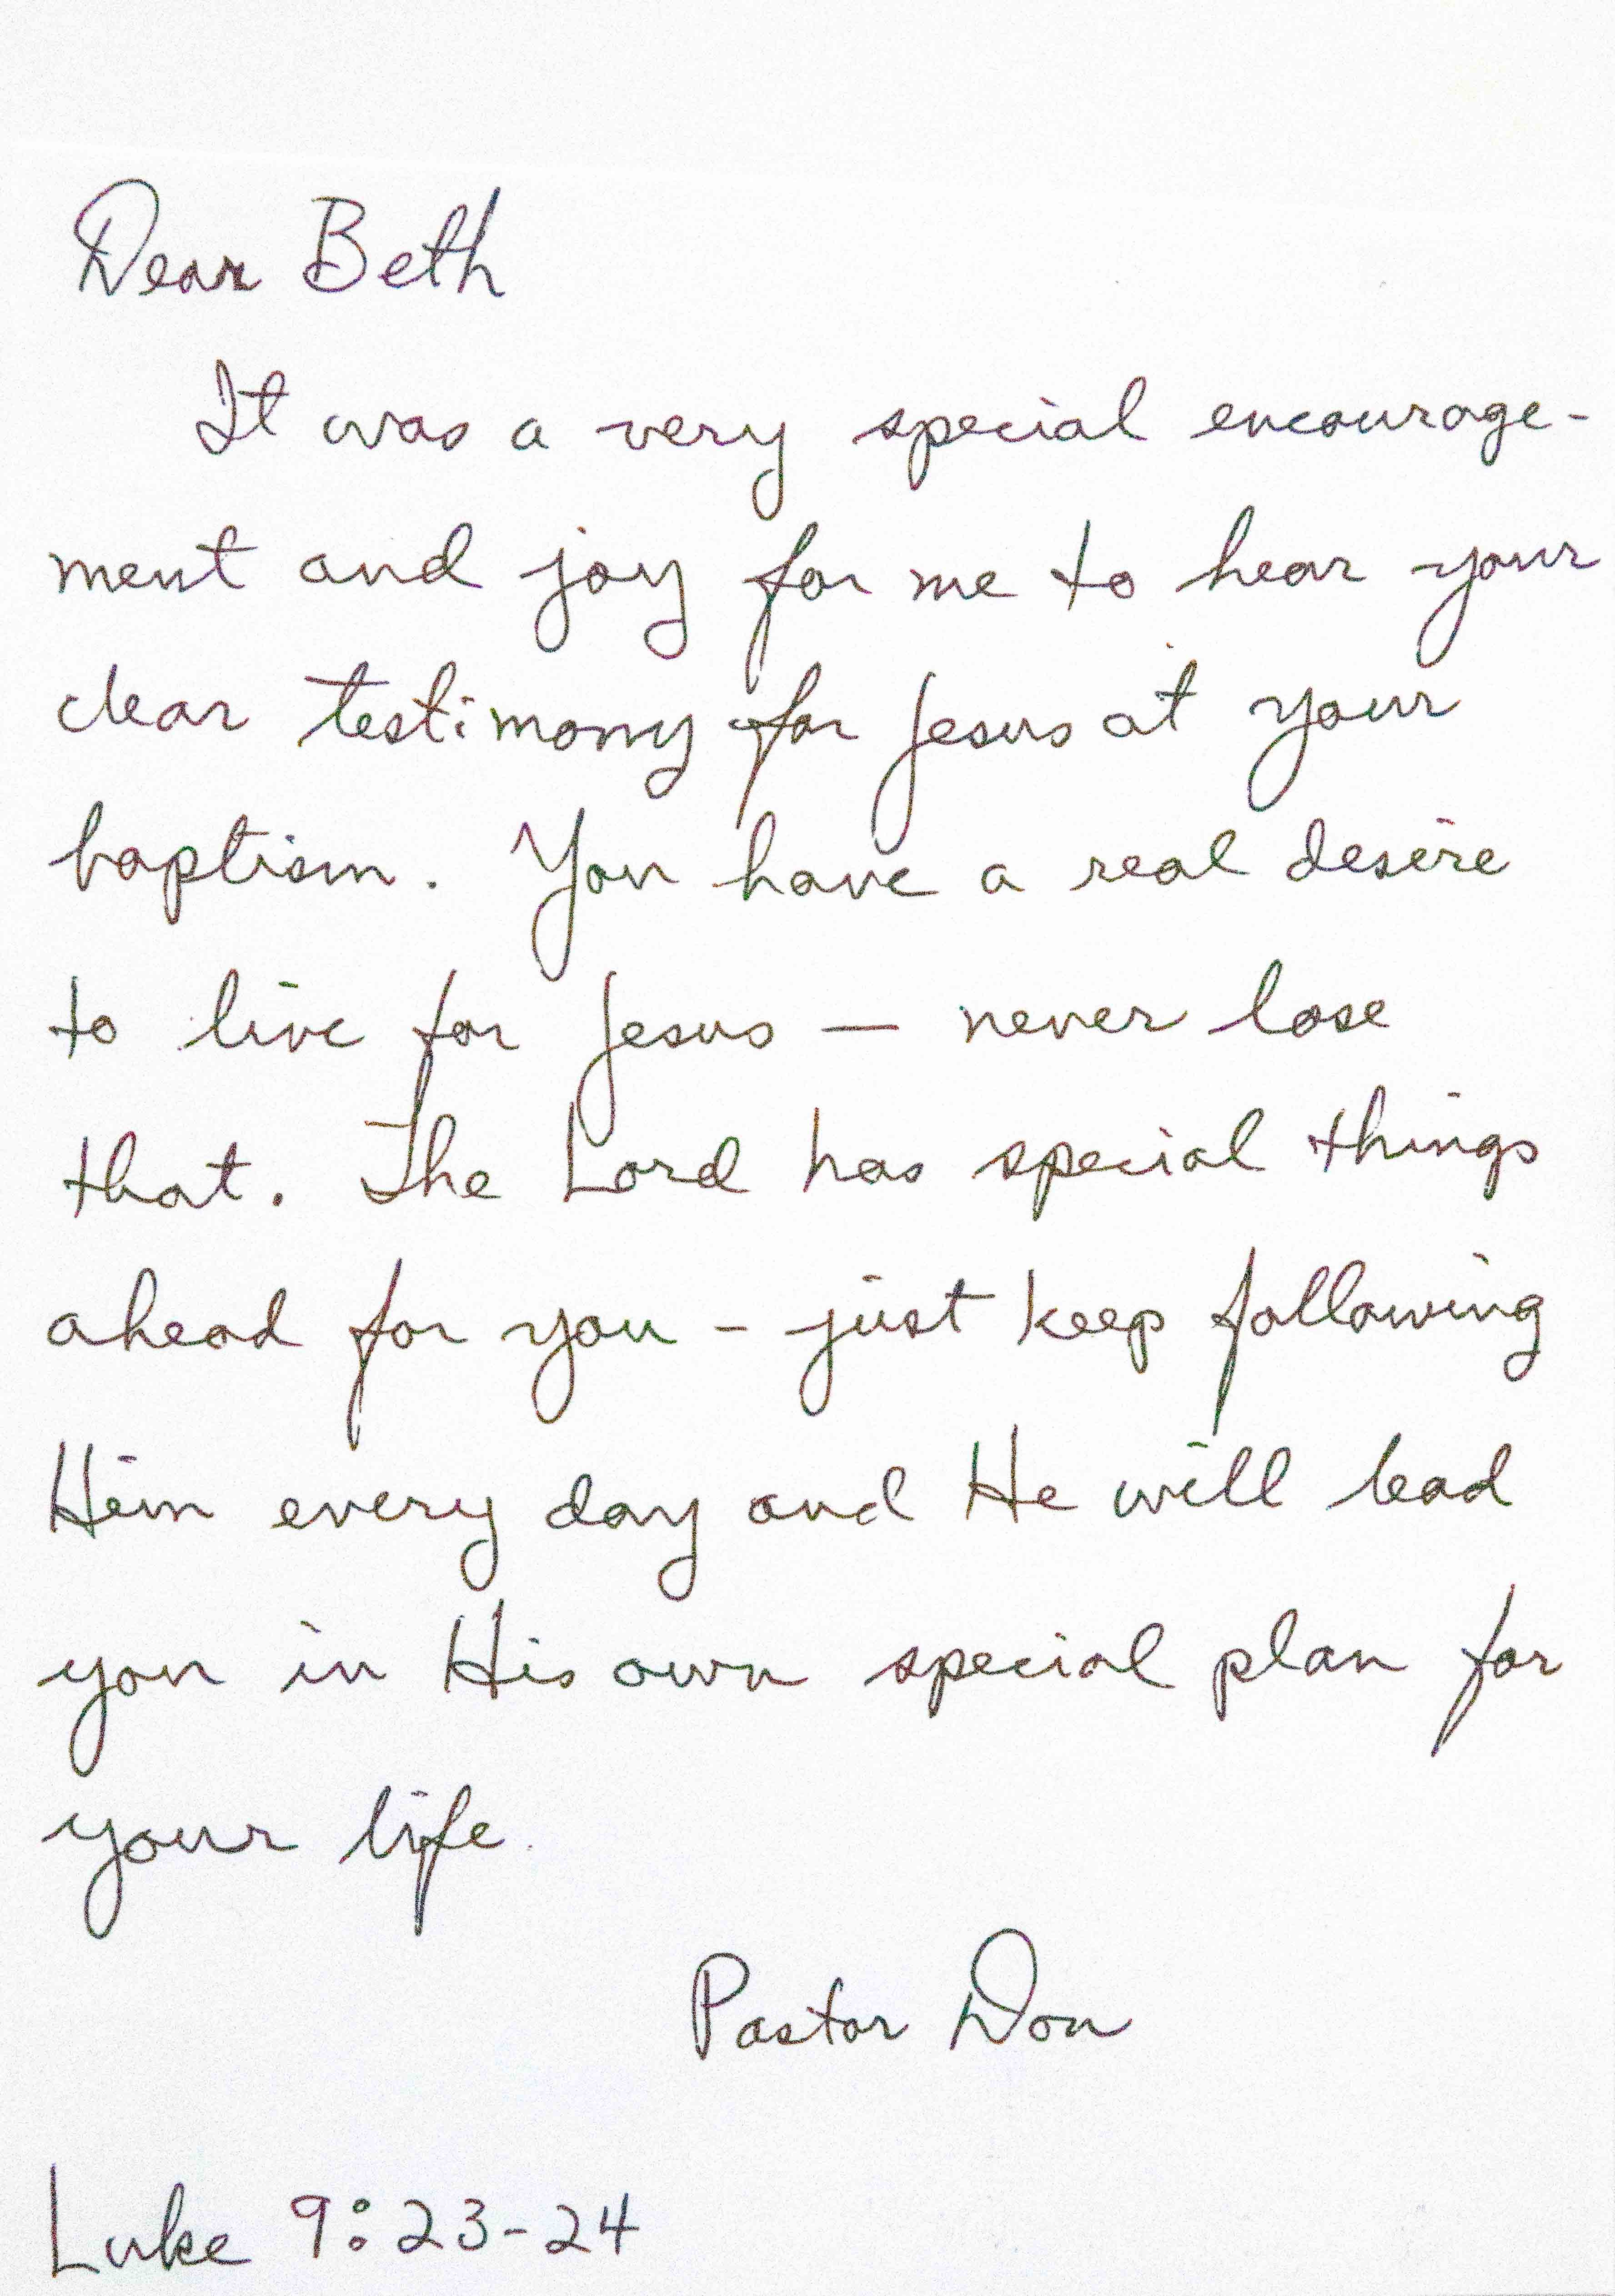 Dear Beth
It was a very special encourage-
ment and joy for me to hear your
clear testimony for Jesus at your
baptism. You have a real desire
to live for Jesus — never lose
that. The Lord has special things
ahead for you - just keep following
Him every day and He will lead
you in His own special plan for
your life.
Pastor Don
Luke 9:23-24